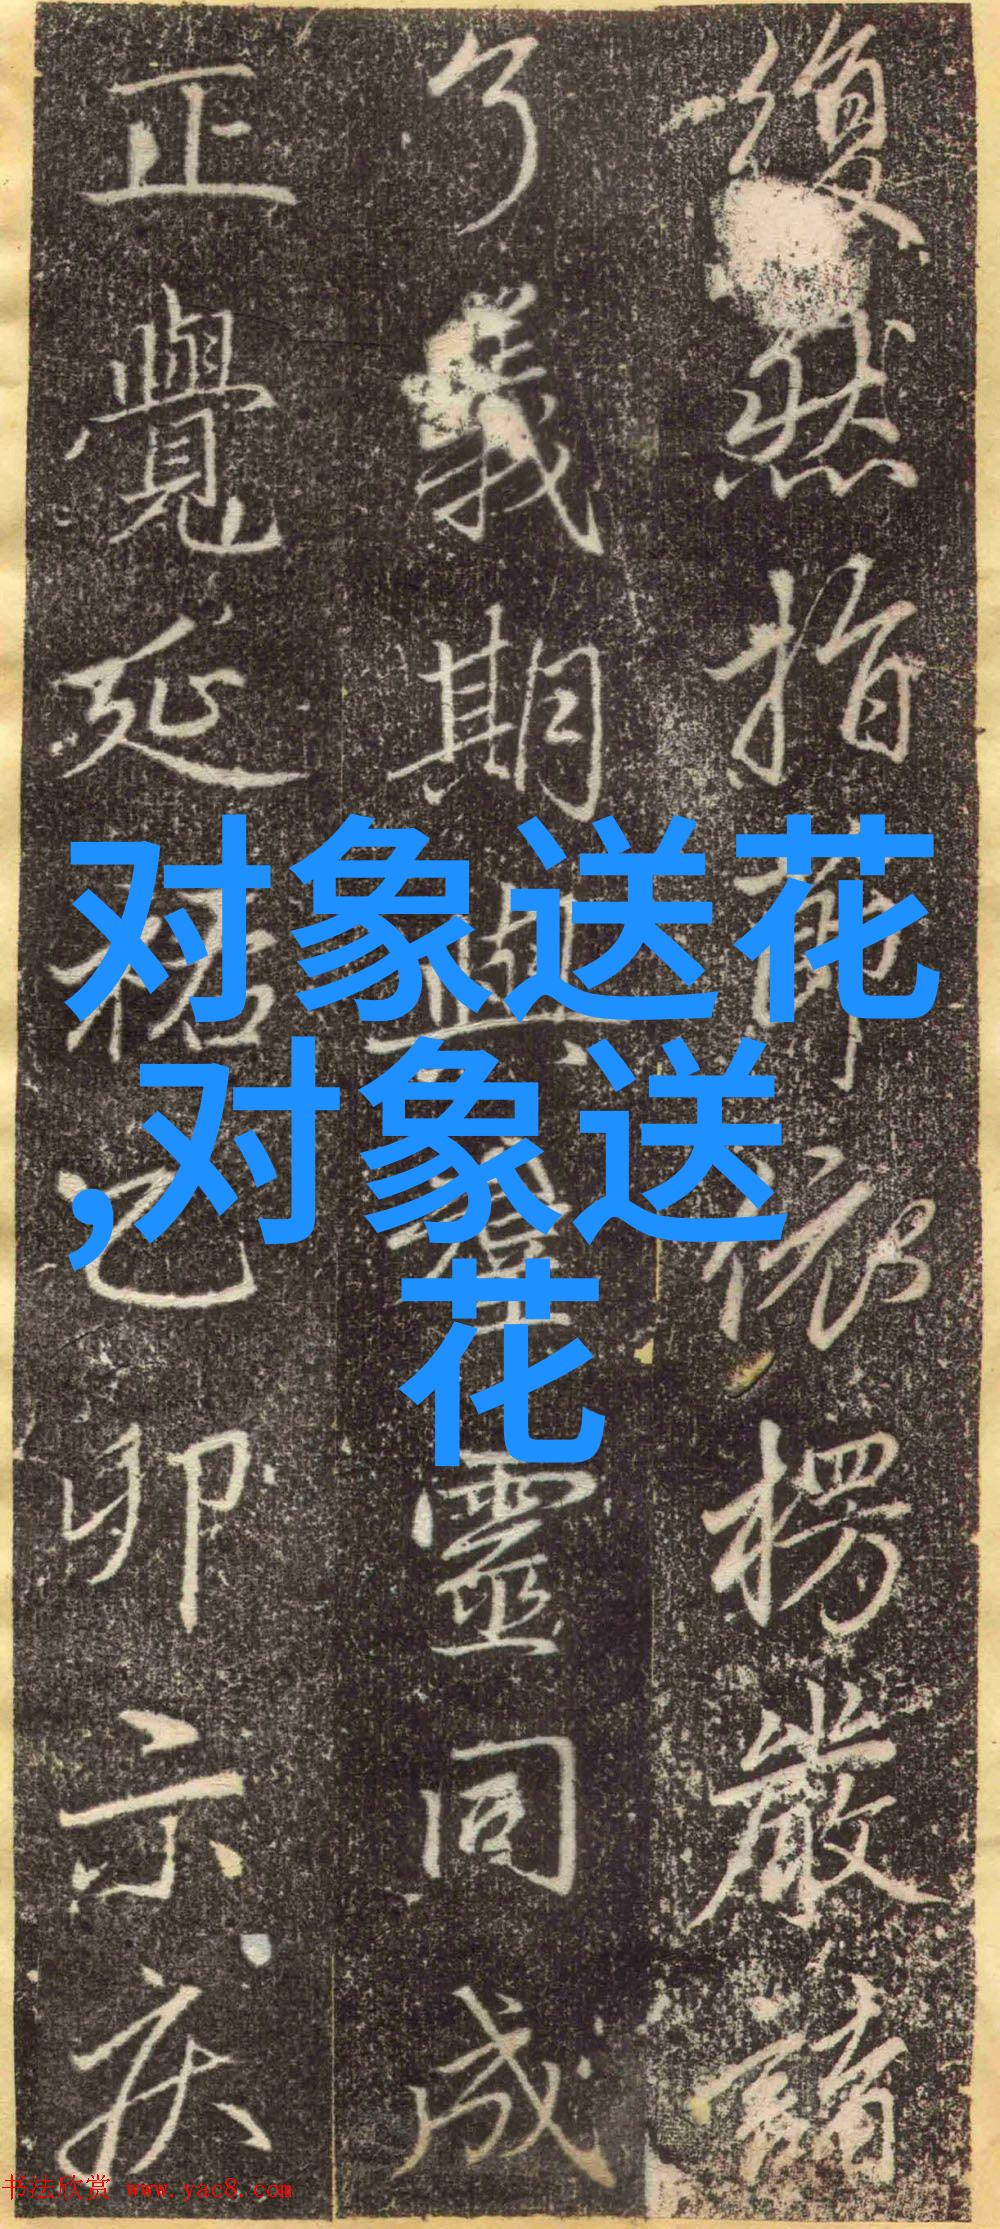 復然指
依楞嚴
了義期
靈同成
正覺延
己卯示疾
对象送花
,对象送
花
书法欣赏 www.yac8.com